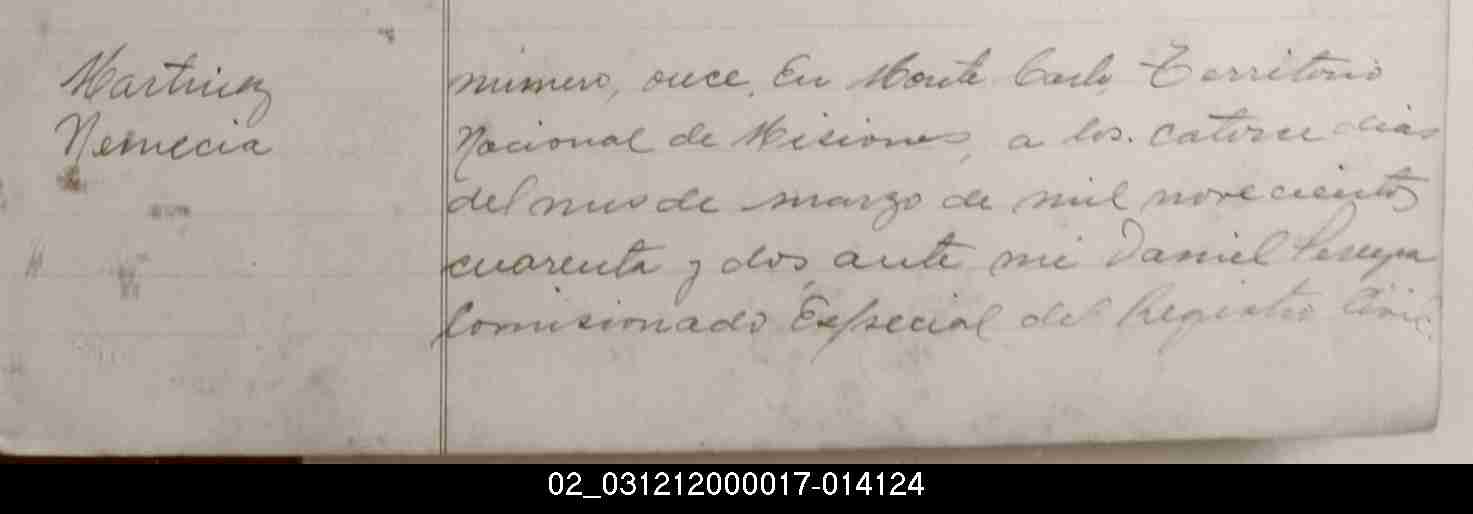 Martinez
Nemecia
número, once, En Monte Carlo, Territorio
Nacional de Misiones, a los catorce dias
del mes de marzo de mil novecientos
cuarenta y dos, ante mi Daniel Pereyra
Comisionado Especial del Registro Civil
02_031212000017-014124